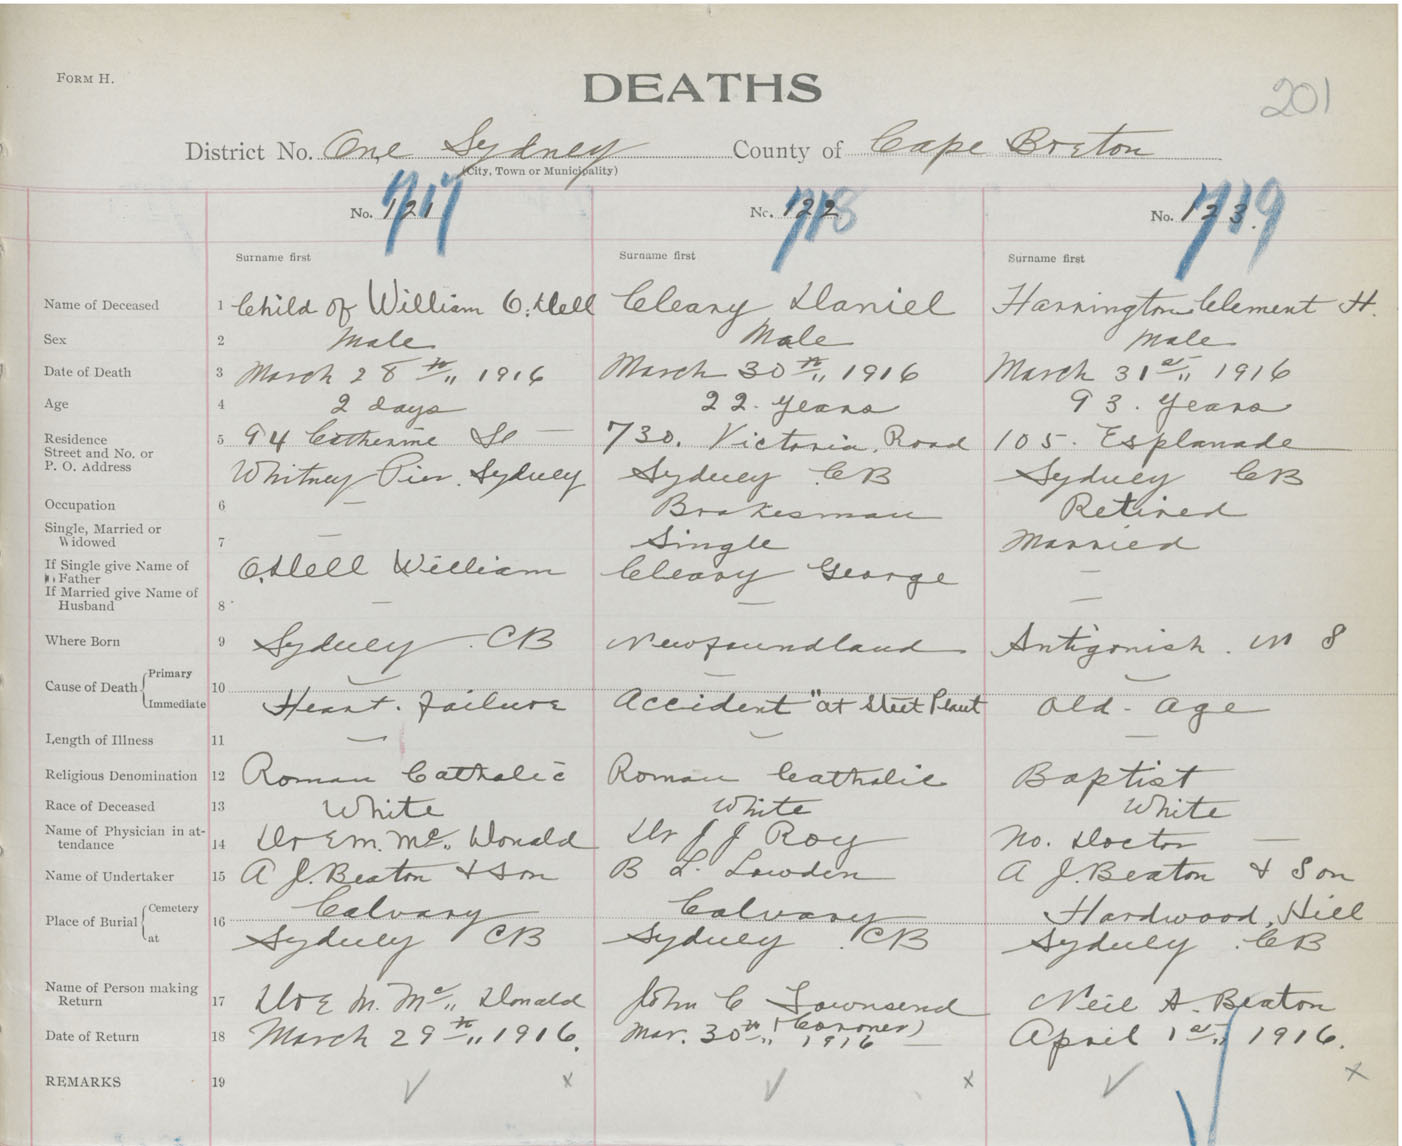 FORM H.
DEATHS
201
District No. One Sydney County of Cape Breton
(City, Town or Municipality)
No. 121 717 No. 122 718 No. 123. 719
Surname first Surname first Surname first
Name of Deceased 1 Child of William O,Dell Cleary Daniel Harrington Clement H.
Sex 2 Male Male Male
Date of Death 3 March 28th,, 1916 March 30th,, 1916 March 31st,, 1916
Age 4 2 days 22. years 93. years
Residence 5 94 Catherine St — 730. Victoria Road 105. Esplanade
Street and No. or
P. O. Address Whitney Pier. Sydney Sydney CB Sydney CB
Occupation 6 — Brakesman Retired
Single, Married or
Widowed 7 — Single Married
If Single give Name of
Father O,Dell William Cleary George —
If Married give Name of
Husband 8 — — —
Where Born 9 Sydney. CB Newfoundland Antigonish. N S
Cause of Death Primary 10 — — —
Immediate Heart. failure Accident "at Steel Plant Old - Age
Length of Illness 11 — — —
Religious Denomination 12 Roman Catholic Roman Catholic Baptist
Race of Deceased 13 White White White
Name of Physician in at-
tendance 14 Dr E M. Mc,, Donald Dr J J Roy No. Doctor —
Name of Undertaker 15 A J. Beaton & Son B L. Lowden A J. Beaton & Son
Place of Burial Cemetery 16 Calvary Calvary Hardwood, Hill
at Sydney CB Sydney. CB Sydney. CB
Name of Person making
Return 17 Dr E M. Mc,, Donald John C Townsend Neil A. Beaton
(Coroner)
Date of Return 18 March 29th,, 1916. Mar. 30th,, 1916 — April 1st,, 1916.
REMARKS 19 ✓ x ✓ x ✓ x